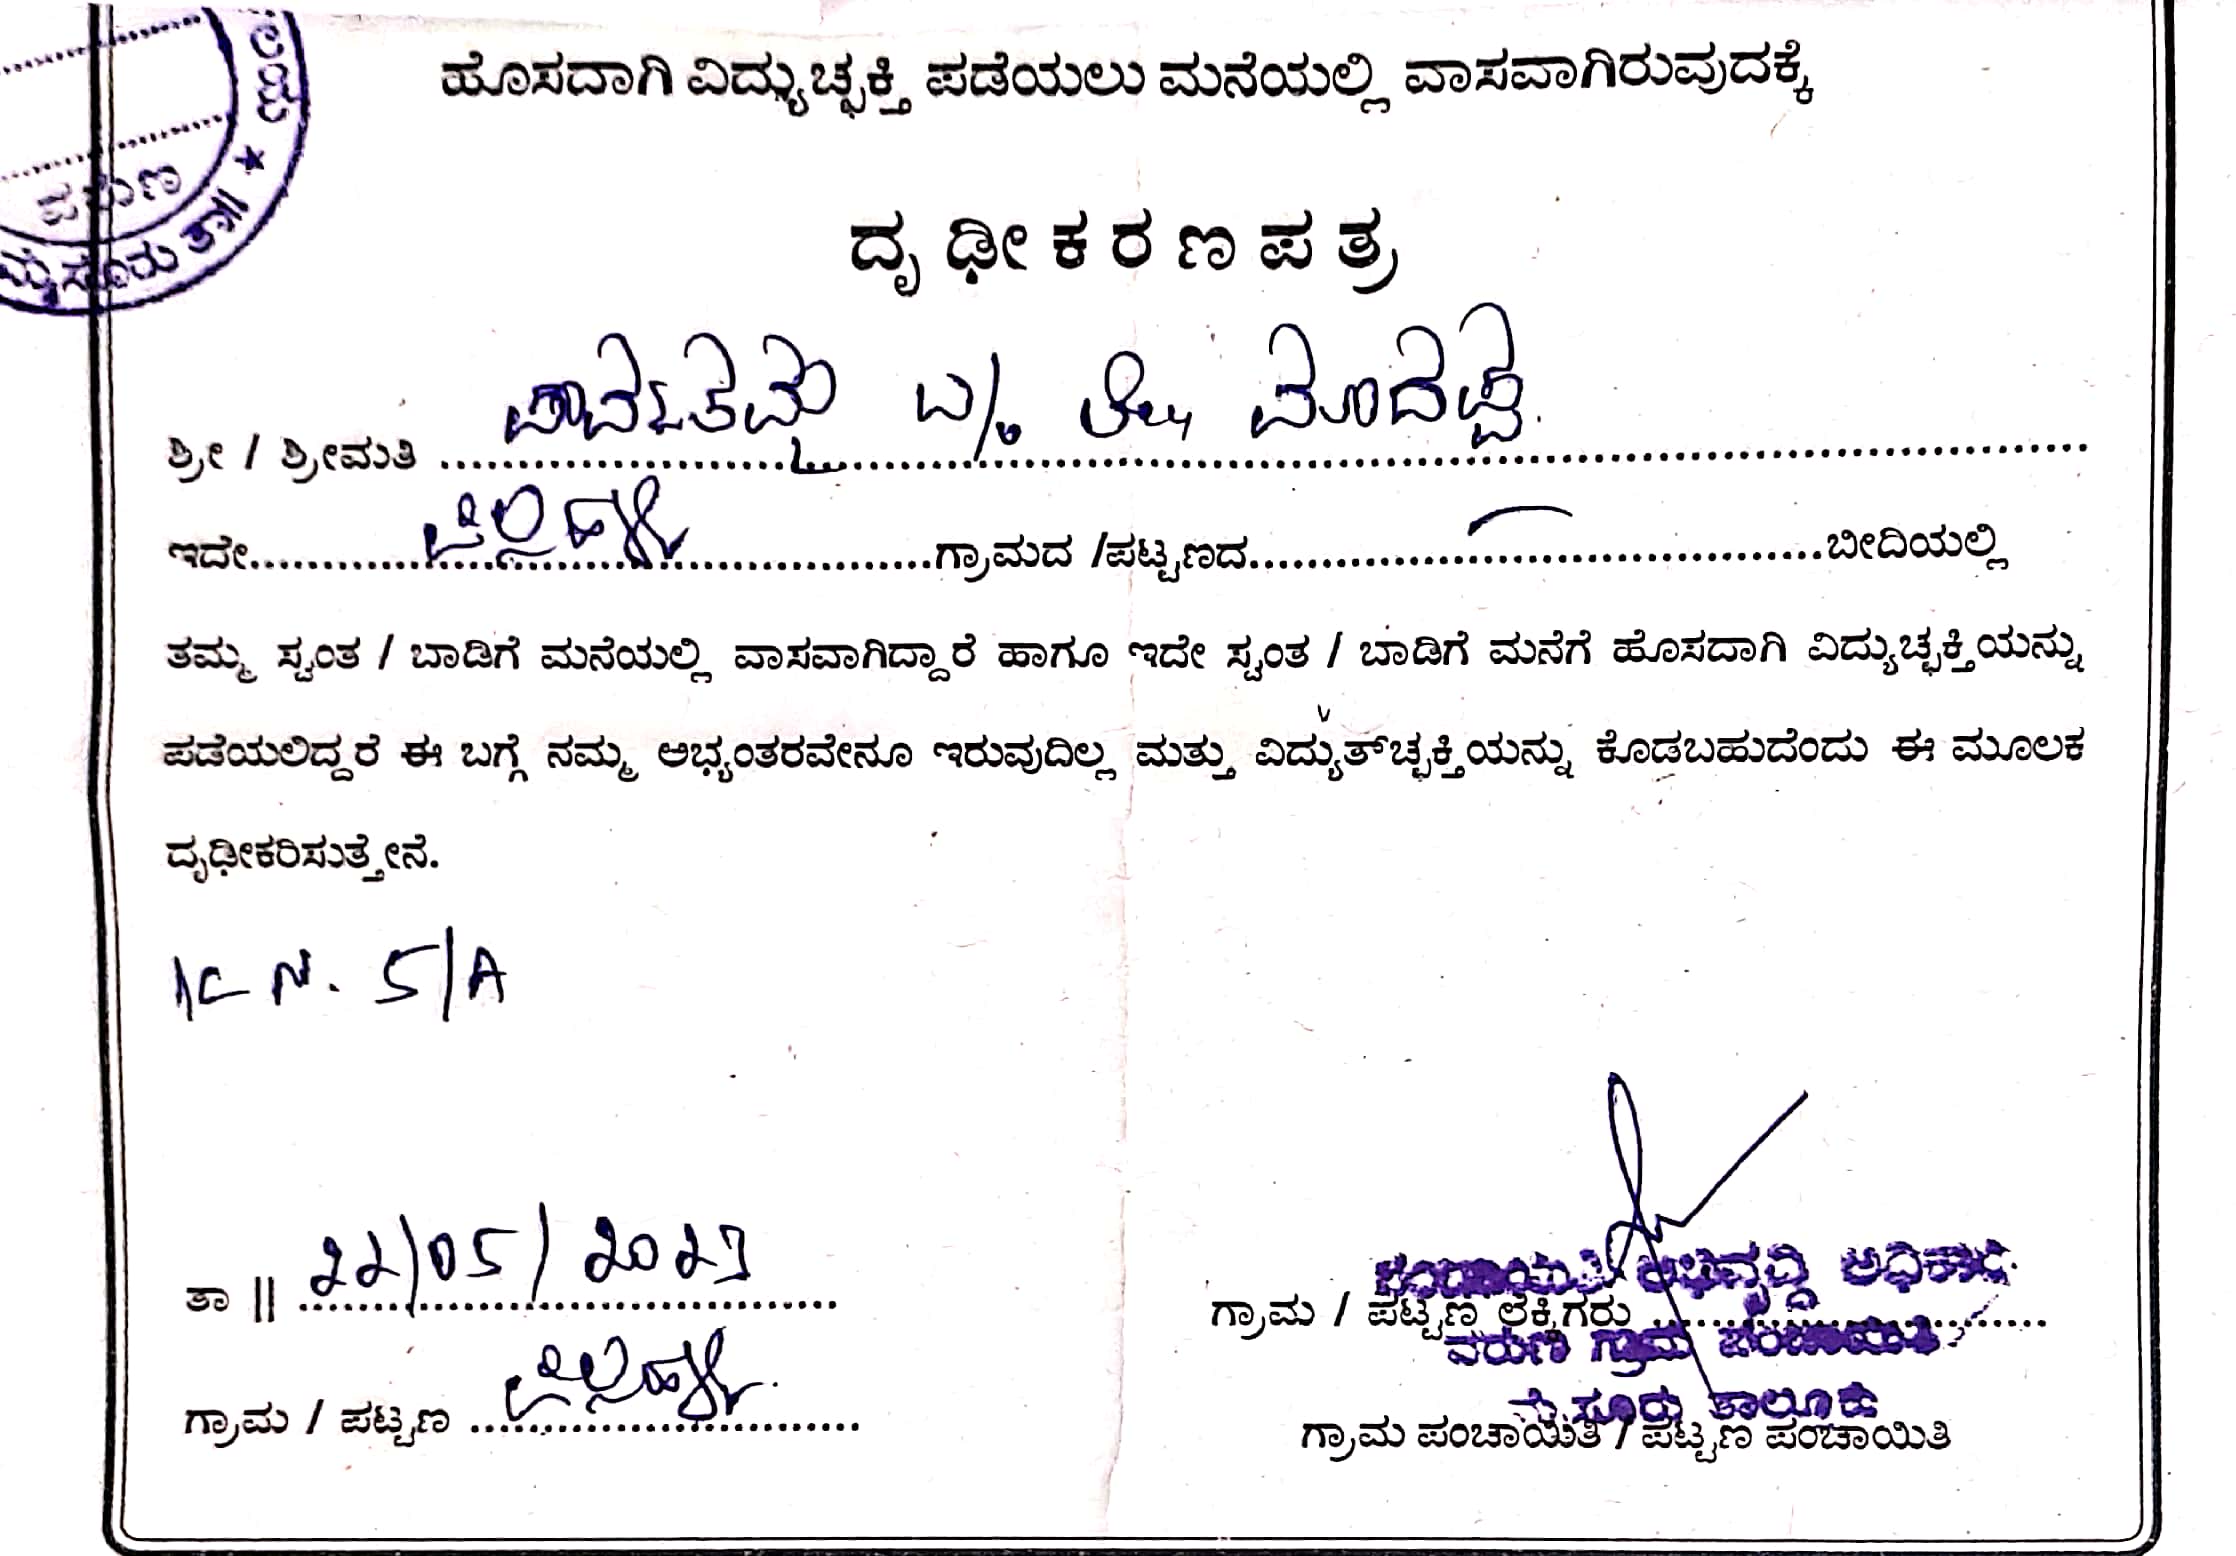 ಹೊಸದಾಗಿ ವಿದ್ಯುಚ್ಛಕ್ತಿ ಪಡೆಯಲು ಮನೆಯಲ್ಲಿ ವಾಸವಾಗಿರುವುದಕ್ಕೆ
ವರುಣ
ಮೈಸೂರು ತಾ॥ ★
ದೃಢೀಕರಣಪತ್ರ
ಶ್ರೀ / ಶ್ರೀಮತಿ ಪಾರ್ವತಮ್ಮ ಮಾದಪ್ಪ.
ಇದೇ....................ಗ್ರಾಮದ /ಪಟ್ಟಣದ....................ಬೀದಿಯಲ್ಲಿ
ತಮ್ಮ ಸ್ವಂತ / ಬಾಡಿಗೆ ಮನೆಯಲ್ಲಿ ವಾಸವಾಗಿದ್ದಾರೆ ಹಾಗೂ ಇದೇ ಸ್ವಂತ / ಬಾಡಿಗೆ ಮನೆಗೆ ಹೊಸದಾಗಿ ವಿದ್ಯುಚ್ಛಕ್ತಿಯನ್ನು
ಪಡೆಯಲಿದ್ದರೆ ಈ ಬಗ್ಗೆ ನಮ್ಮ ಅಭ್ಯಂತರವೇನೂ ಇರುವುದಿಲ್ಲ ಮತ್ತು ವಿದ್ಯುತ್‌ಚ್ಛಕ್ತಿಯನ್ನು ಕೊಡಬಹುದೆಂದು ಈ ಮೂಲಕ
ದೃಢೀಕರಿಸುತ್ತೇನೆ.
K N. 5/A
ತಾ || 22/05/2023
ಪಂಚಾಯಿತಿ ಅಭಿವೃದ್ಧಿ ಅಧಿಕಾರಿ
ಗ್ರಾಮ / ಪಟ್ಟಣ ಲೆಕ್ಕಿಗರು ....................
ವರುಣ ಗ್ರಾಮ ಪಂಚಾಯಿತಿ
ಮೈಸೂರು ತಾಲೂಕು
ಗ್ರಾಮ / ಪಟ್ಟಣ ....................
ಗ್ರಾಮ ಪಂಚಾಯಿತಿ / ಪಟ್ಟಣ ಪಂಚಾಯಿತಿ